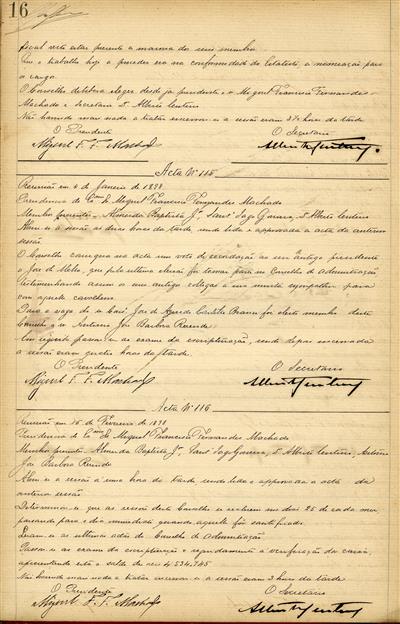 16
fiscal visto estar presente a maioria dos seus membros
Que o trabalho hoje a proceder era na conformidade do Estatuto, a nomeação para
o cargo.
O Conselho deliberou eleger desde já presidente o Sr. Miguel Francisco Fernandes
Machado e Secretario o Sr. Alberto Centeno
Não havendo mais nada a tratar encerrou-se a sessão eram 3 ½ horas da tarde
O Presidente O Secretario
Miguel F. F. Machado
Acta Nº 115
Reunião em 6 de Janeiro de 1898
Presidencia do Exmo Sr. Miguel Francisco Fernandes Machado
Membros presentes - Almeida Baptista Jr, Sant'Iago Gouvea, e Alberto Centeno
Abriu-se a sessão ás duas horas da tarde sendo lida e approvada a acta da anterior
sessão
O Conselho consigna na acta um voto de saudação ao seu antigo presidente
o José de Mello, que pela ultima eleição foi tomar parte no Conselho de Administração
testimunhando assim ao seu antigo collega a sua muita sympathia para
com aquele cavalheiro
Para a vaga de José de foi eleito membro deste
Conselho o Sr. Antonio José Barbosa
Em seguida passou-se ao exame da escripturação, sendo depois encerrada
a sessão eram quatro horas da tarde.
O Presidente O Secretario
Miguel F. F. Machado
Acta Nº 116
Reunião em 15 de Fevereiro de 1898
Presidencia do Exmo Sr. Miguel Francisco Fernandes Machado
Membros presentes Almeida Baptista Jr, Sant'Iago Gouvea, e Alberto Centeno, Antonio
José Barbosa
Abriu-se a sessão á uma hora da tarde sendo lida e approvada a acta da
anterior sessão
Determinou-se que as sessões deste Conselho se realisem nos dias 25 de cada mez
passando para o dia immediato quando aquelle fôr santificado.
Leram-se as ultimas actas do Conselho de Administração
Passou-se ao exame da escripturação e seguidamente á verificação da caixa,
apresentando esta o saldo de reis 4.534.745
Não havendo mais nada a tratar encerrou-se a sessão eram 3 horas da tarde
O Presidente O Secretario
Miguel F. F. Machado